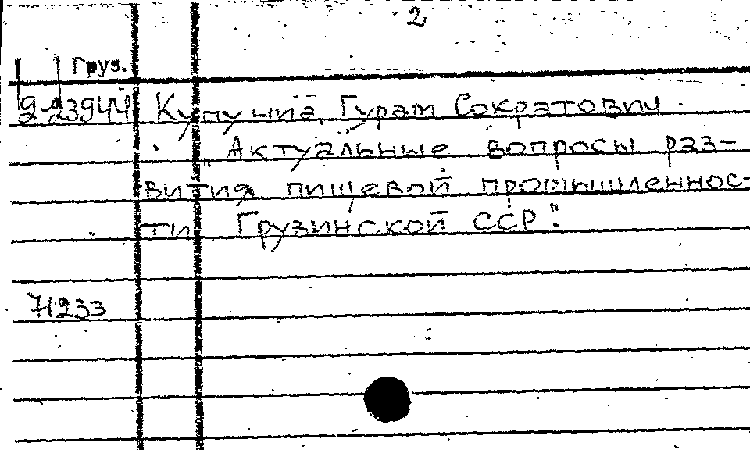 2
Груз.
2-23944 Купуния, Гурам Сократович
"Актуальные вопросы раз-
вития пищевой промышленнос-
ти Грузинской ССР".
71233